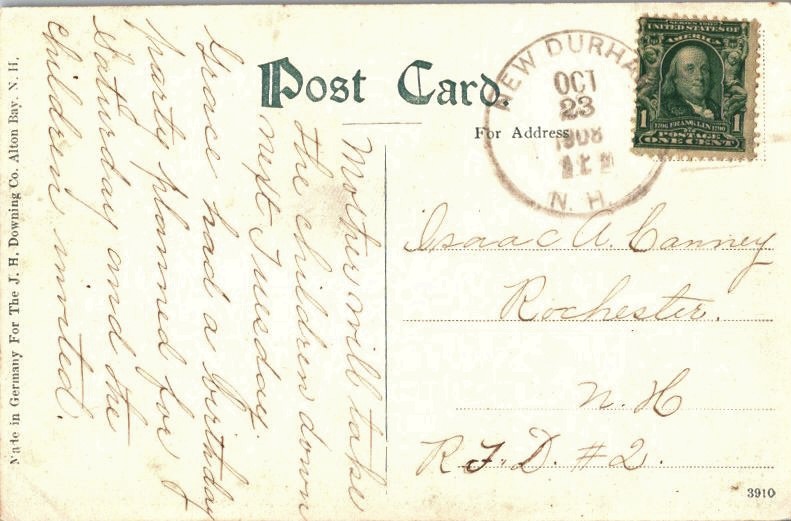 Post Card.
For Address
NEW DURHA
OCT
23
1908
N. H.
SERIES 1902
UNITED STATES OF
AMERICA
1706 FRANKLIN 1790
1 POSTAGE 1
ONE CENT
Mother will take
the children down
next Tuesday.
Grace had a birthday
party planned for
Saturday and the
children invited.
Isaac A. Canney
Rochester.
N. H
R. F. D. #2.
Made in Germany For The J. H. Downing Co. Alton Bay, N. H.
3910